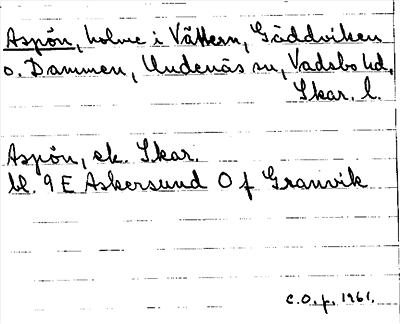 Aspön, holme i Vättern, Gäddviken
o. Dammen, Undenäs sn, Vadsbo hd,
Skar. l.
Aspön, ek. Skar.
bl. 9 E Askersund 0 f Granvik
C.O.p. 1961.